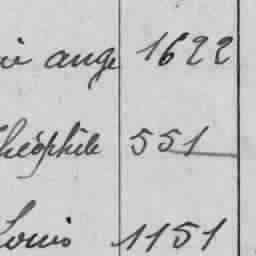 ie ange 1622
Théophile 551
Louis 1151